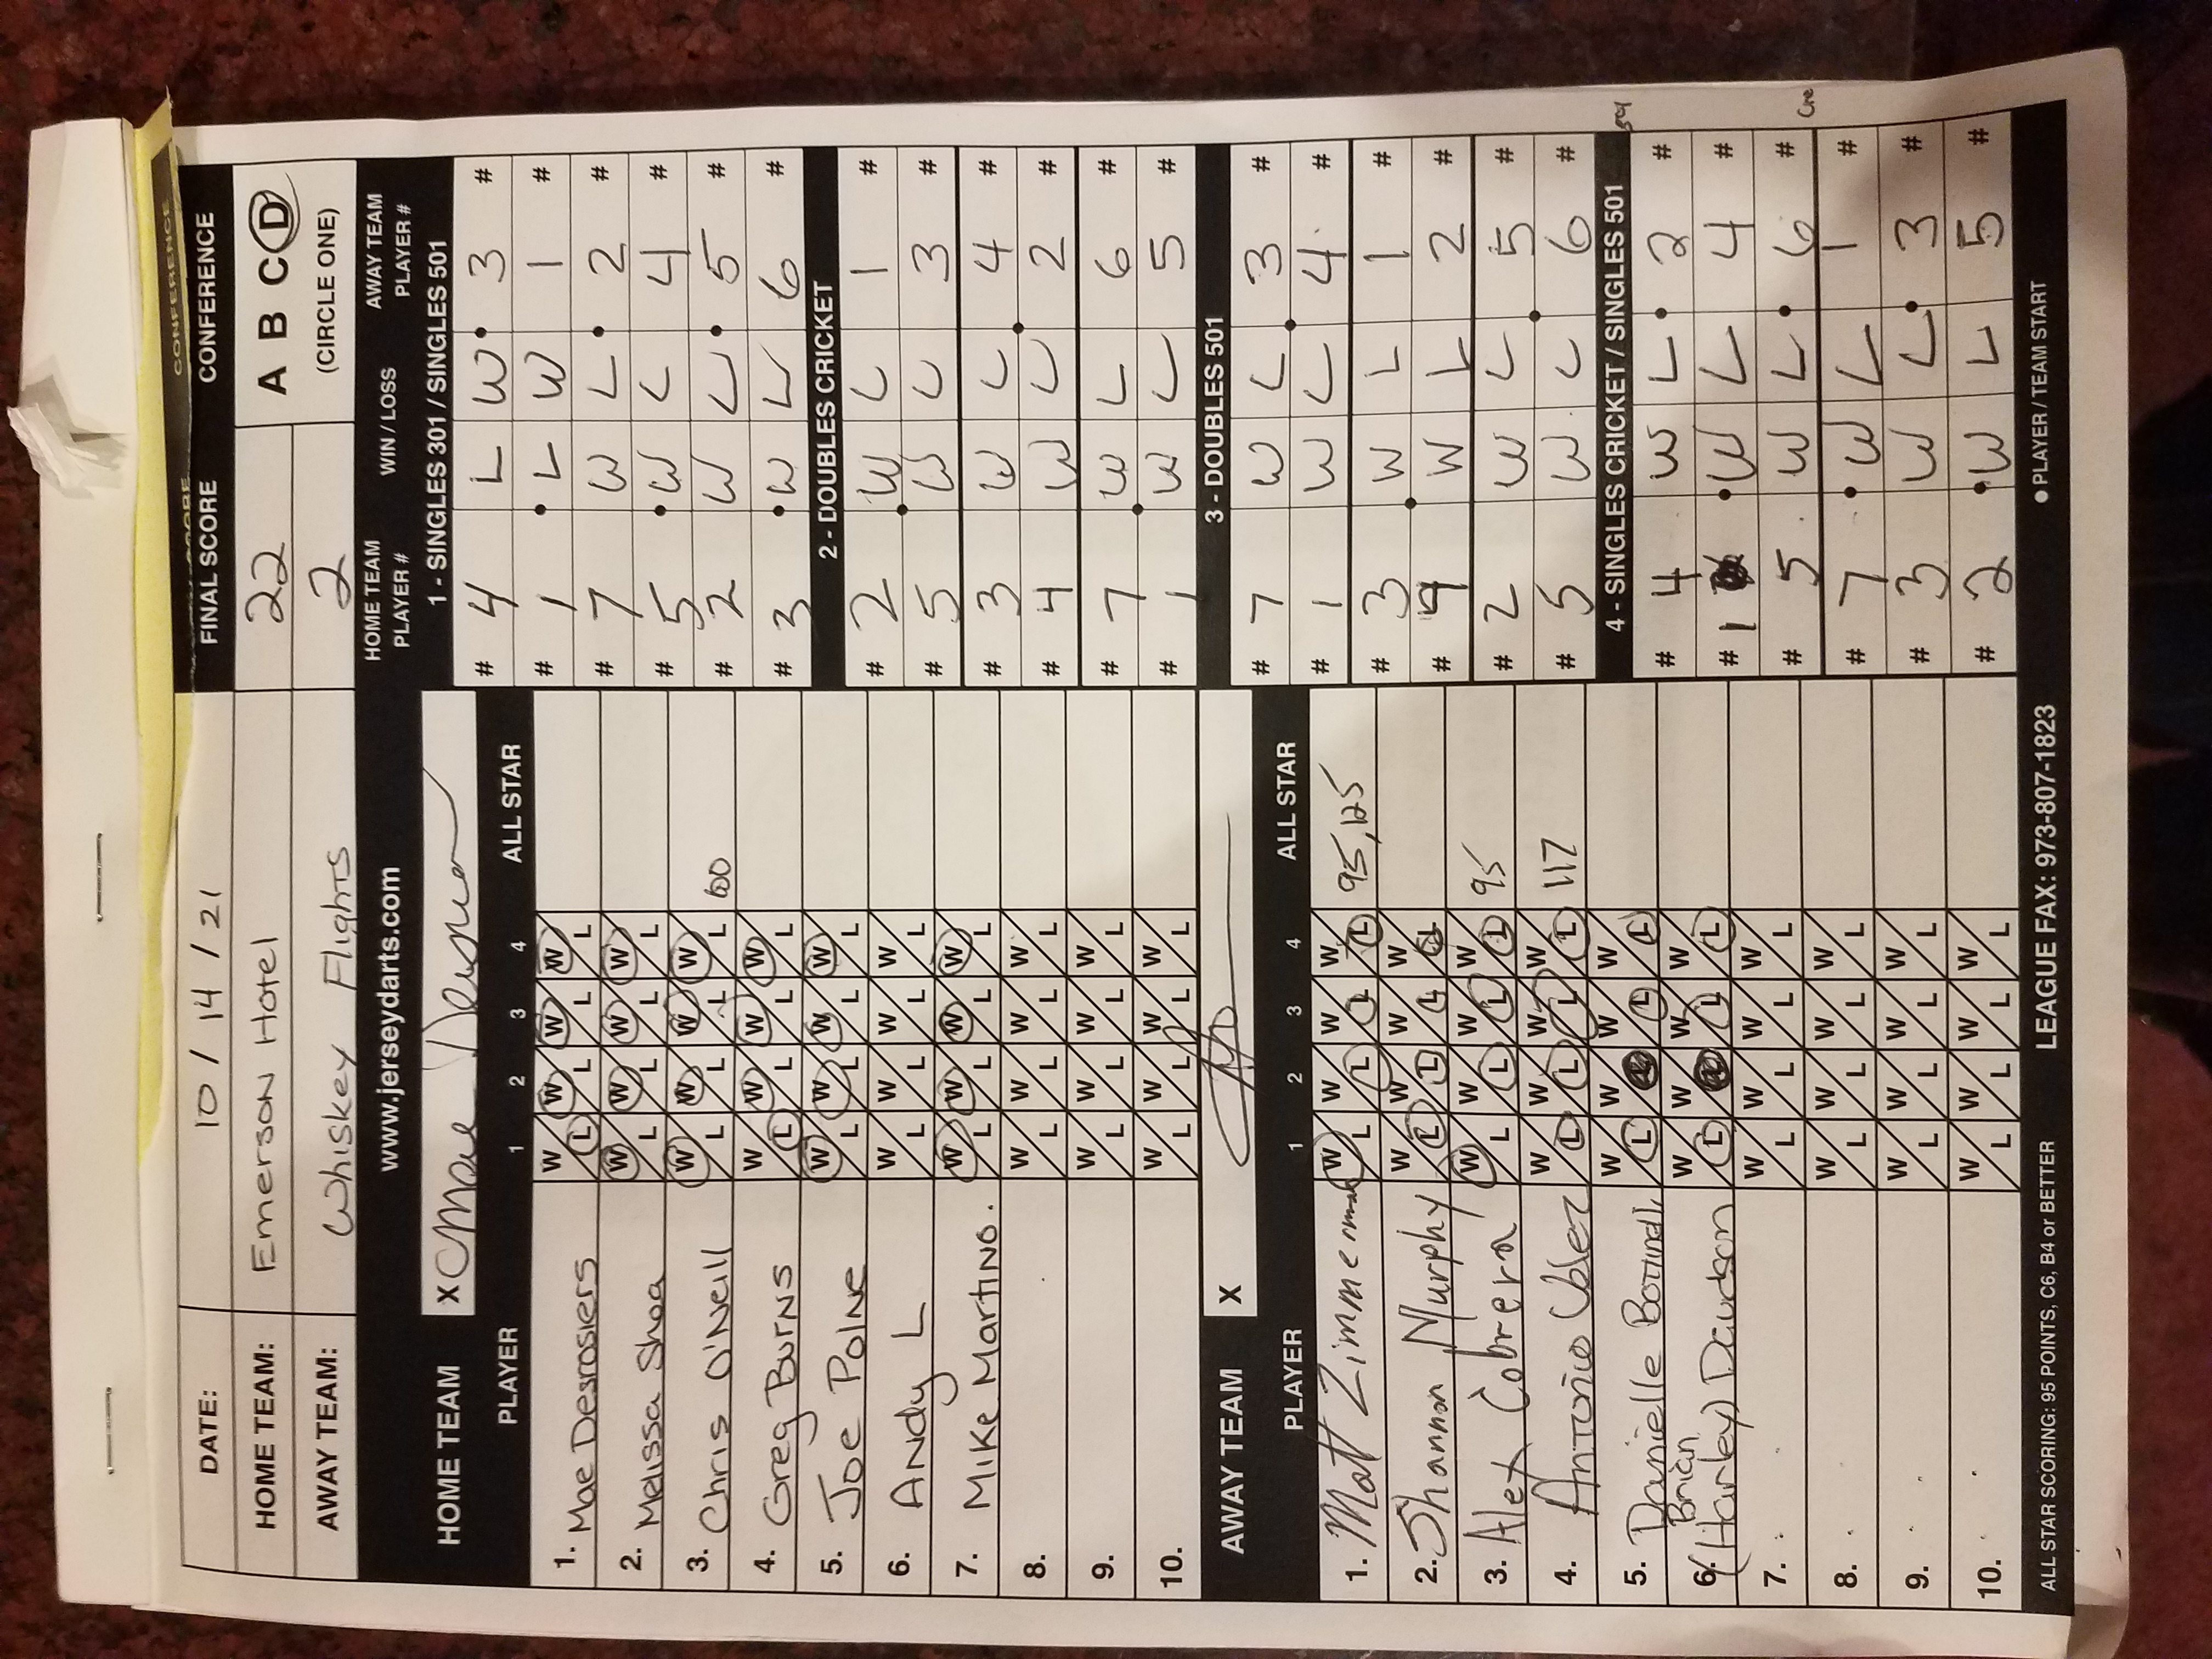 CONFERENCE
DATE: 10 / 14 / 21 FINAL SCORE CONFERENCE
HOME TEAM: Emerson Hotel 22 A B C D
AWAY TEAM: Whiskey Flights 2 (CIRCLE ONE)
www.jerseydarts.com
HOME TEAM PLAYER # WIN / LOSS AWAY TEAM PLAYER #
HOME TEAM X
PLAYER 1 2 3 4 ALL STAR
1. Mae Desrosiers W/L W/L W/L W/L
2. Melissa Shea W/L W/L W/L W/L
3. Chris O'Neill W/L W/L W/L W/L 100
4. Greg Burns W/L W/L W/L W/L
5. Joe Polne W/L W/L W/L W/L
6. Andy L W/L W/L W/L W/L
7. Mike Martino. W/L W/L W/L W/L
8. W/L W/L W/L W/L
9. W/L W/L W/L W/L
10. W/L W/L W/L W/L
AWAY TEAM X
PLAYER 1 2 3 4 ALL STAR
1. Matt Zimmerman W/L W/L W/L W/L 95, 125
2. Shannon Murphy W/L W/L W/L W/L
3. Alex Cobrera W/L W/L W/L W/L 95
4. Antonio W/L W/L W/L W/L 117
5. Danielle W/L W/L W/L W/L
Brian
6. (Harley) Davidson W/L W/L W/L W/L
7. W/L W/L W/L W/L
8. W/L W/L W/L W/L
9. W/L W/L W/L W/L
10. W/L W/L W/L W/L
1 - SINGLES 301 / SINGLES 501
# 4 L W 3 #
# 1 L W 1 #
# 7 W L 2 #
# 5 W L 4 #
# 2 W L 5 #
# 3 W L 6 #
2 - DOUBLES CRICKET
# 2 W L 1 #
# 5 W L 3 #
# 3 W L 4 #
# 4 W L 2 #
# 7 W L 6 #
# 1 W L 5 #
3 - DOUBLES 501
# 7 W L 3 #
# 1 W L 4 #
# 3 W L 1 #
# 4 W L 2 #
# 2 W L 5 #
# 5 W L 6 #
4 - SINGLES CRICKET / SINGLES 501
# 4 W L 2 # 501
# 1 W L 4 #
# 5 W L 6 #
# 7 W L 1 # Cre
# 3 W L 3 #
# 2 W L 5 #
● PLAYER / TEAM START
ALL STAR SCORING: 95 POINTS, C6, B4 or BETTER LEAGUE FAX: 973-807-1823